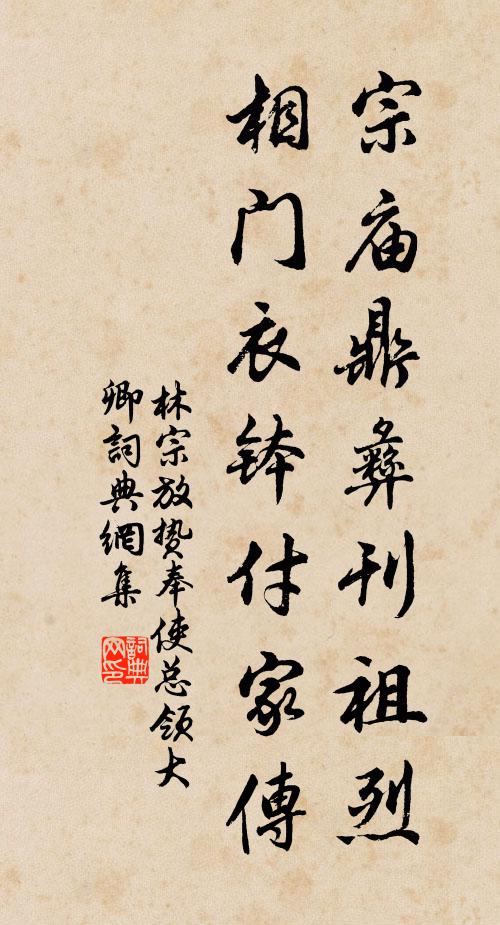 宗庙鼎彝刊祖烈
相门衣钵付家傳
林宗放贽奉使总领大
卿詞典網集
詞典网印